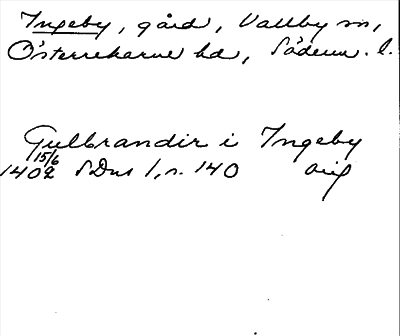 Ingeby, gård, Vallby sn,
Österrekarne hd, Söderm. l.
Gulbrandir i Ingeby
15/6
1402 SDns 1, n. 140 orig